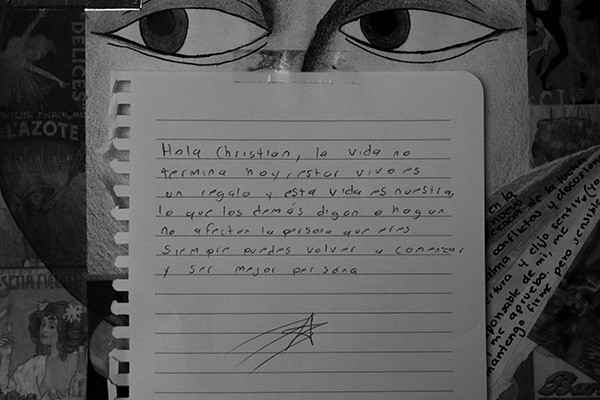 DELICES
L'AZOTE
Hola Christian, la vida no
termina hoy, estar vivo es
un regalo y esta vida es nuestra,
lo que los demás digan o hagan
no afectan la persona que eres.
Siempre puedes volver a comenzar
y ser mejor persona
en la
conflictos y
y dijo sentire
de mi, me
me apruebo, me
mantengo firme pero sensible